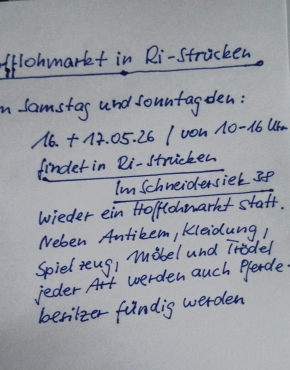 offlohmarkt in Ri-Strücken
m Samstag und Sonntag den:
16. + 17.05.26 / von 10-16 Uhr
findet in Ri-Strücken
Im Schneidersiek
wieder ein Hofflohmarkt statt.
Neben Antikem, Kleidung,
Spielzeug, Möbel und Trödel
jeder Art werden auch Pferde-
besitzer fündig werden